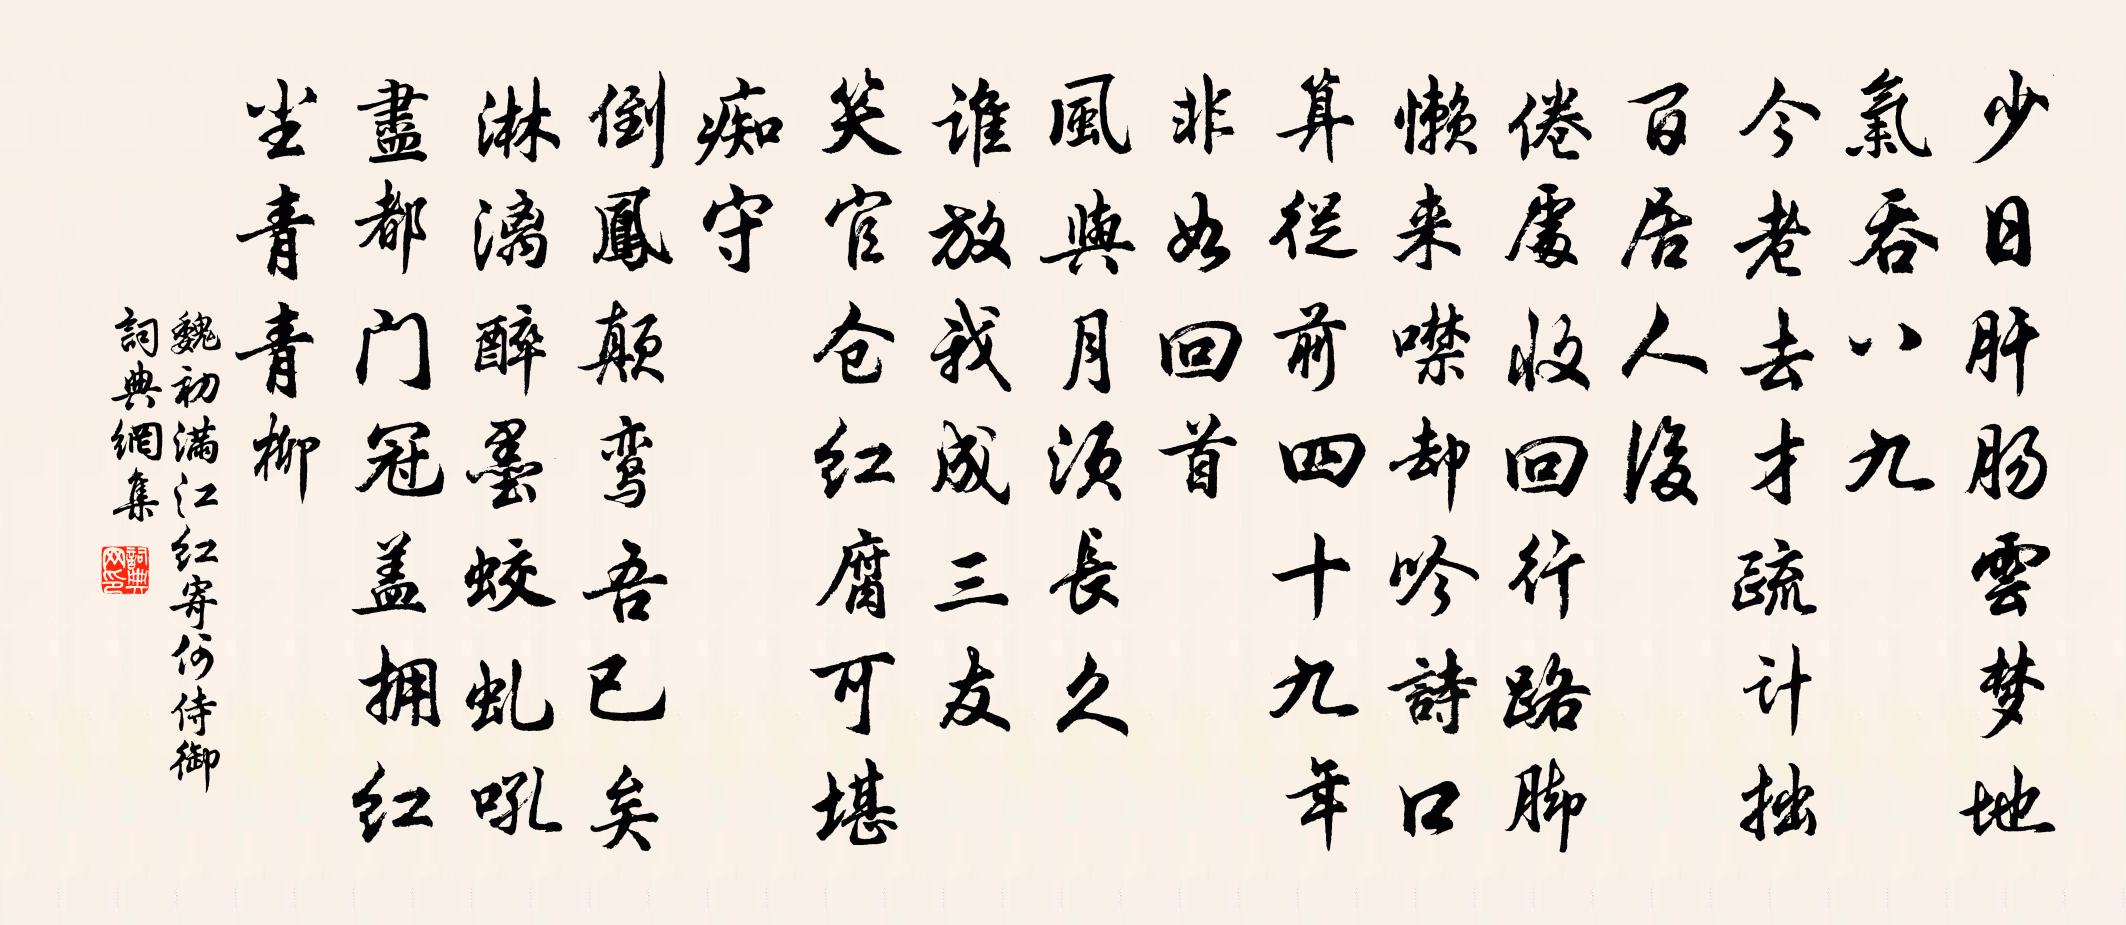 少日肝肠雲梦地
氣吞八九
今老去才疏计拙
百居人後
倦處收回行路脚
懒来噤却吟詩口
算從前四十九年
非如回首
風與月须長久
谁放我成三友
笑官仓红腐可堪
痴守
倒鳳颠鸾吾已矣
淋漓醉墨蛟虬吼
盡都门冠盖拥红
尘青青柳
魏初满江红寄何侍御
詞典網集
詞典网印